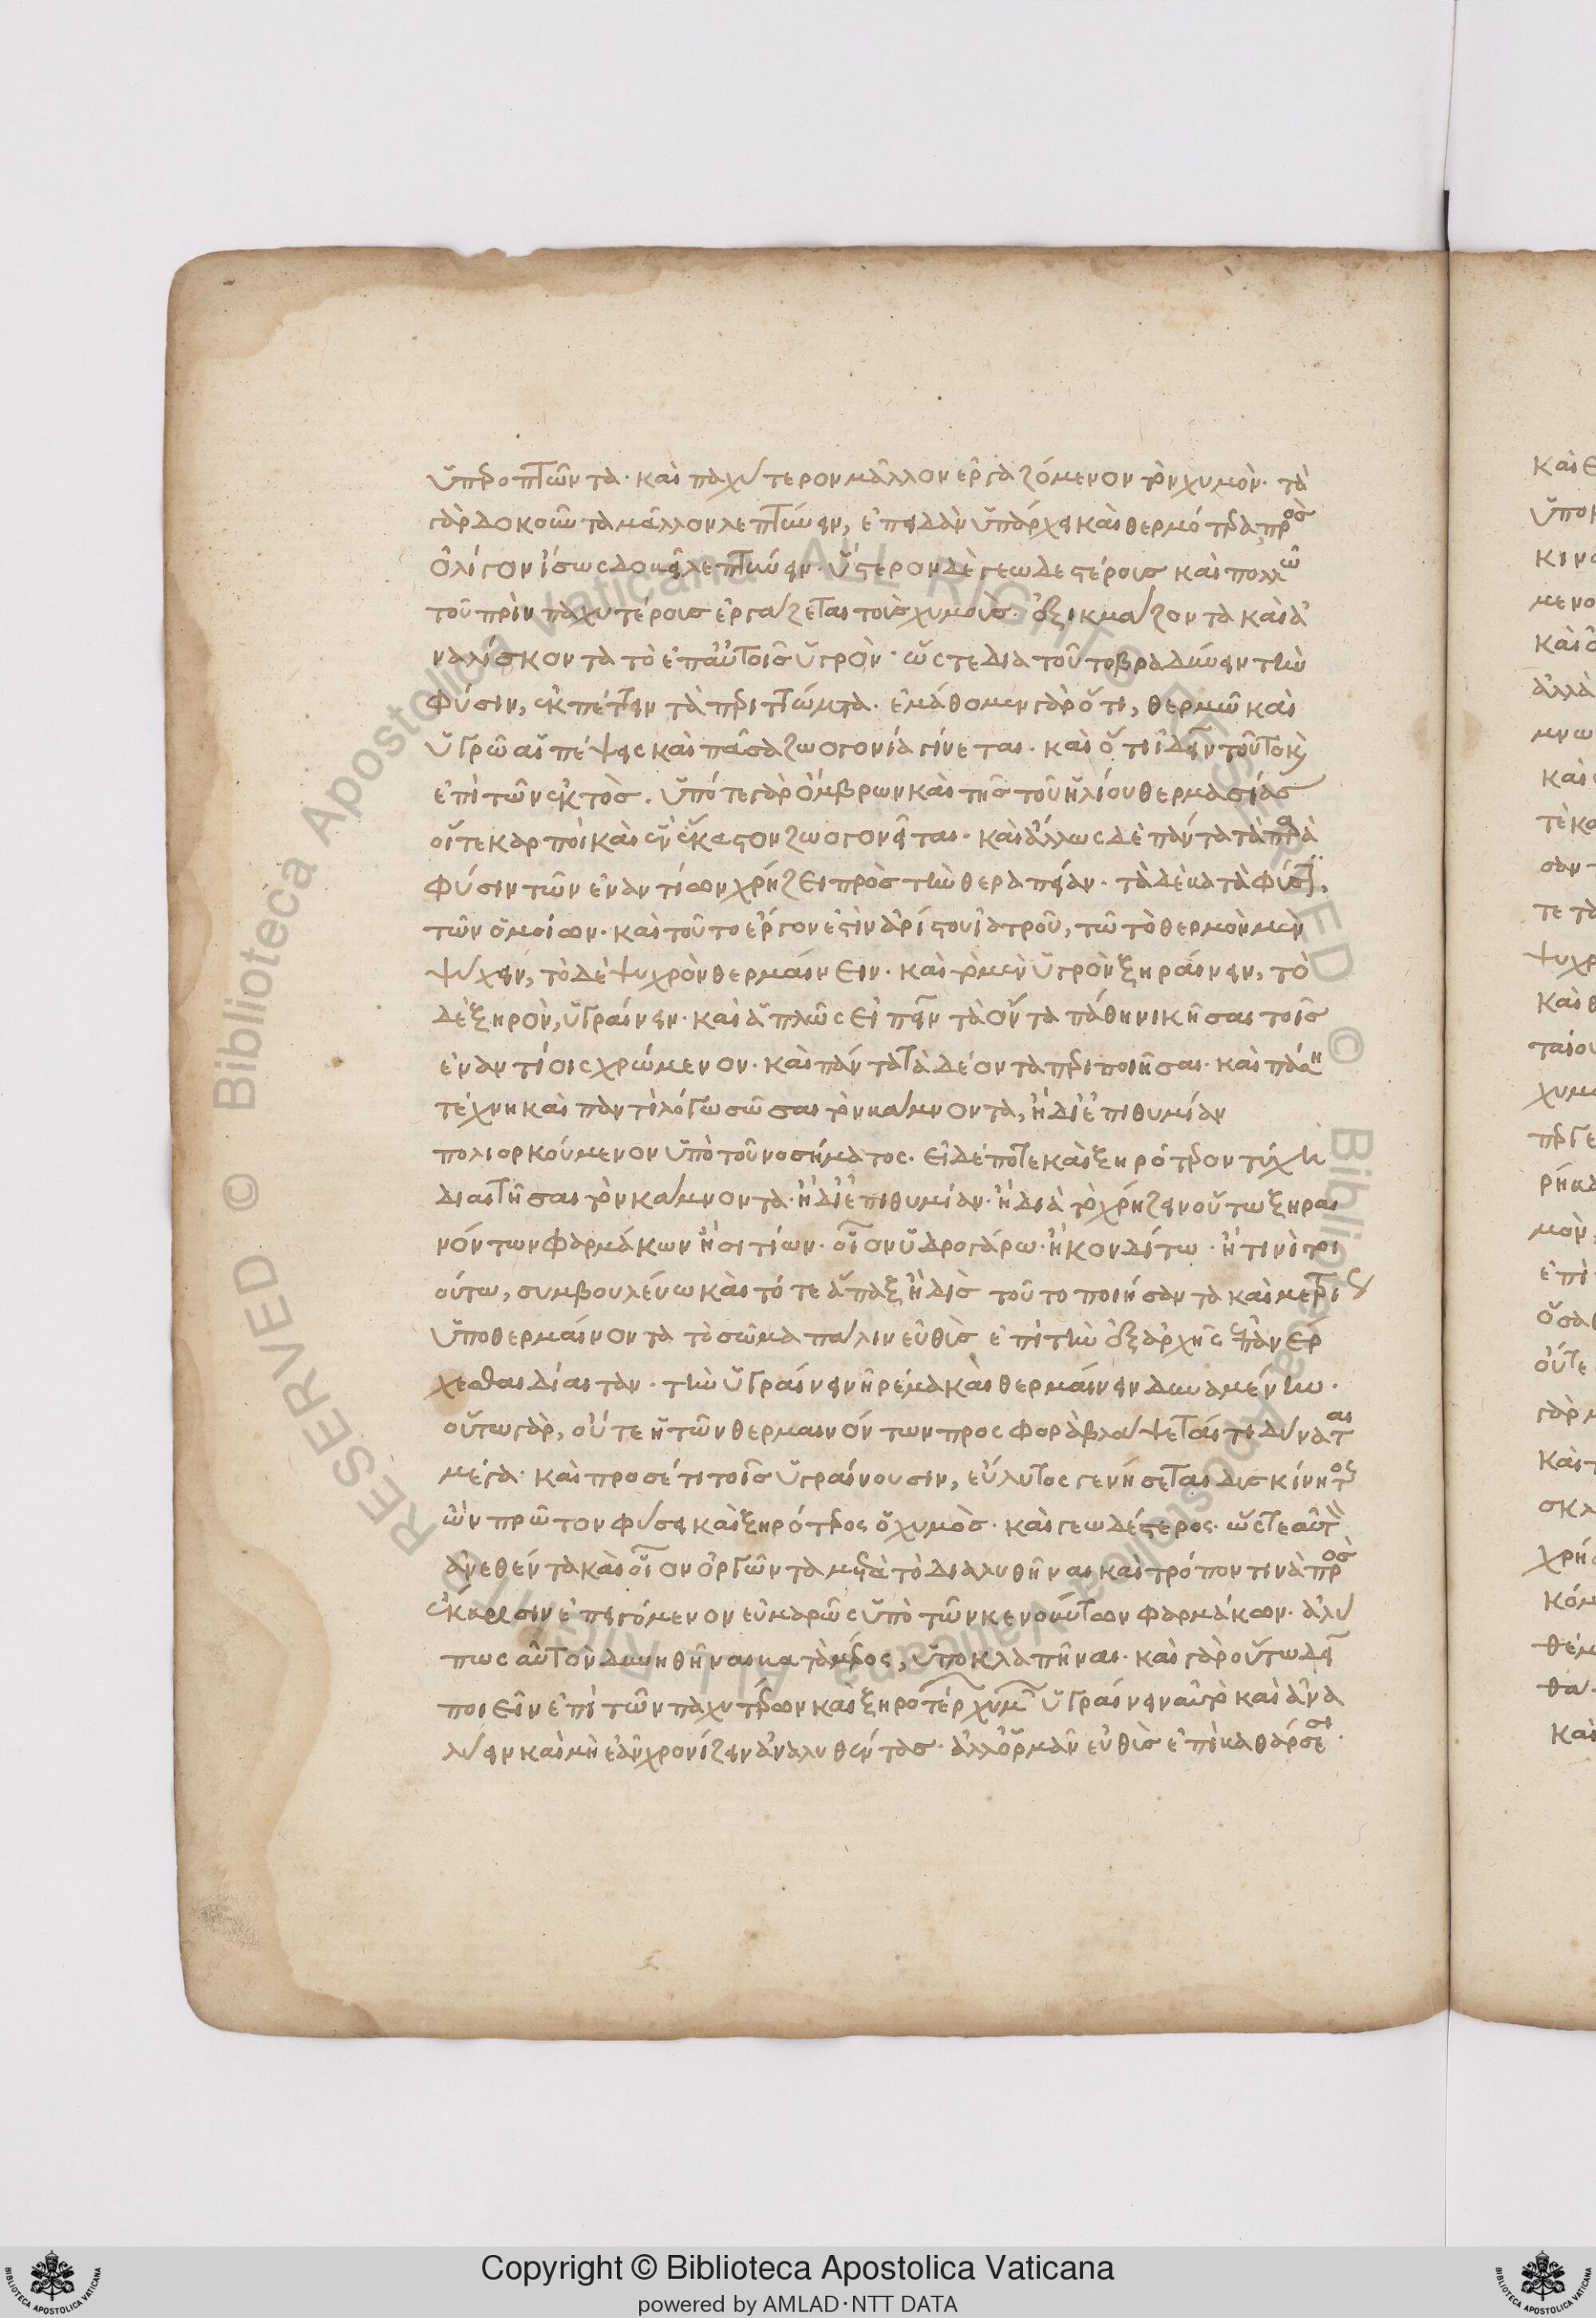 ὑπεροπτῶντα· καὶ παχύτερον μᾶλλον ἐργαζόμενον τὸν χυμὸν· τὰ
γὰρ δοκοῦντα μᾶλλον λεπτύνειν, ἐπειδὰν ὑπάρχη καὶ θερμότερα, πρὸς
ὀλίγον ἴσως δοκεῖ λεπτύνειν· ὕστερον δὲ γεωδεστέροις καὶ πολλῶ
τοῦ πρὶν παχυτέροις ἐργάζεται τοῖς χυμοῖς· ἐξικμάζοντα καὶ ἀ
ναλίσκοντα τὸ ἐπ αὐτοῖς ὑγρὸν· ὥστε δια τοῦτο βραδύνειν τὴν
φύσιν, ἐκπέττειν τὰ περιττώματα· ἐμάθομεν γὰρ ὅτι, θερμῶ καὶ
ὑγρῶ αἱ πέψεις καὶ πᾶσα ζωογονία γίνεται· καὶ ὅτι ἰδεῖν τοῦτο κ
ἐπὶ τῶν ἐκτὸς. ὑπό τε γὰρ ὄμβρων καὶ τῆς τοῦ ἡλίου θερμασίας
οἵ τε καρποὶ καὶ ἓν ἕκαστον ζωογονεῖται· καὶ ἄλλως δὲ πάντα τὰ παρὰ
φύσιν τῶν ἐναντίων χρήζει πρὸς τὴν θεραπείαν· τὰ δὲ κατὰ φύσιν,
τῶν ὁμοίων· καὶ τοῦτο ἔργον ἐστὶν ἀρίστου ἰατροῦ, τῶ τὸ θερμὸν μὲν
ψύχειν, τὸ δὲ ψυχρὸν θερμαίνειν· καὶ τὸ μὲν ὑγρὸν ξηραίνειν, τὸ
δὲ ξηρὸν, ὑγραίνειν· καὶ ἁπλῶς εἰπεῖν τὰ ὄντα πάθη νικῆσαι τοῖς
ἐναντίοις χρώμενον· καὶ πάντα τὰ δέοντα περιποιῆσαι· καὶ πάση
τέχνη καὶ παντὶ λόγω σῶσαι τὸν κάμνοντα, ἢ δι ἐπιθυμίαν
πολιορκούμενον ὑπὸ τοῦ νοσήματος· εἰ δέ ποτε καὶ ξηρότερον τύχη
διαιτῆσαι τὸν κάμνοντα· ἢ δι ἐπιθυμίαν· ἢ διὰ τὸ χρήζειν οὕτω ξηραι
νόντων φαρμάκων ἢ σιτίων· οἷον ὑδρογάρω· ἢ κονδίτω· ἤ τινι τοι
ούτω, συμβουλεύω καὶ τό τε ἅπαξ ἢ δὶς τοῦτο ποιήσαντα καὶ μετρίως
ὑποθερμαίνοντα τὸ σῶμα πάλιν εὐθὺς ἐπὶ τὴν ἐξ ἀρχῆς ἐπανέρ
χεσθαι δίαιταν· τὴν ὑγραίνειν ἠρέμα καὶ θερμαίνειν δυναμένην·
οὕτω γὰρ, οὔτε ἡ τῶν θερμαινόντων προσφορὰ βλάψεταί τι δύναται
μέγα· καὶ προσέτι τοῖς ὑγραίνουσιν, εὔλυτος γενήσεται δισκίνητος
ὢν πρῶτον φύσει καὶ ξηρότερος ὁ χυμὸς· καὶ γεωδέστερος· ὥστε αὐτὸν
ἀνεθέντα καὶ οἷον ὀργῶντα μετὰ τὸ διαλυθῆναι καὶ τρόπον τινὰ πρὸς
ἔκκρισιν ἐπειγόμενον εὐμαρῶς ὑπὸ τῶν κενούντων φαρμάκων· ἀλύ
πως αὐτὸν δυνηθῆναι κατὰ μέρος, ὑποκλαπῆναι· καὶ γὰρ οὕτω δεῖ
ποιεῖν ἐπὶ τῶν παχυτέρων καὶ ξηροτέρων χυμῶν ὑγραίνειν αὐτὸ καὶ ἀνα
λύειν καὶ μὴ ἐᾶν χρονίζειν ἀναλυθέντας· ἀλλ ὁρμᾶν εὐθὺς ἐπὶ καθάρσεσι·
Copyright © Biblioteca Apostolica Vaticana
powered by AMLAD·NTT DATA